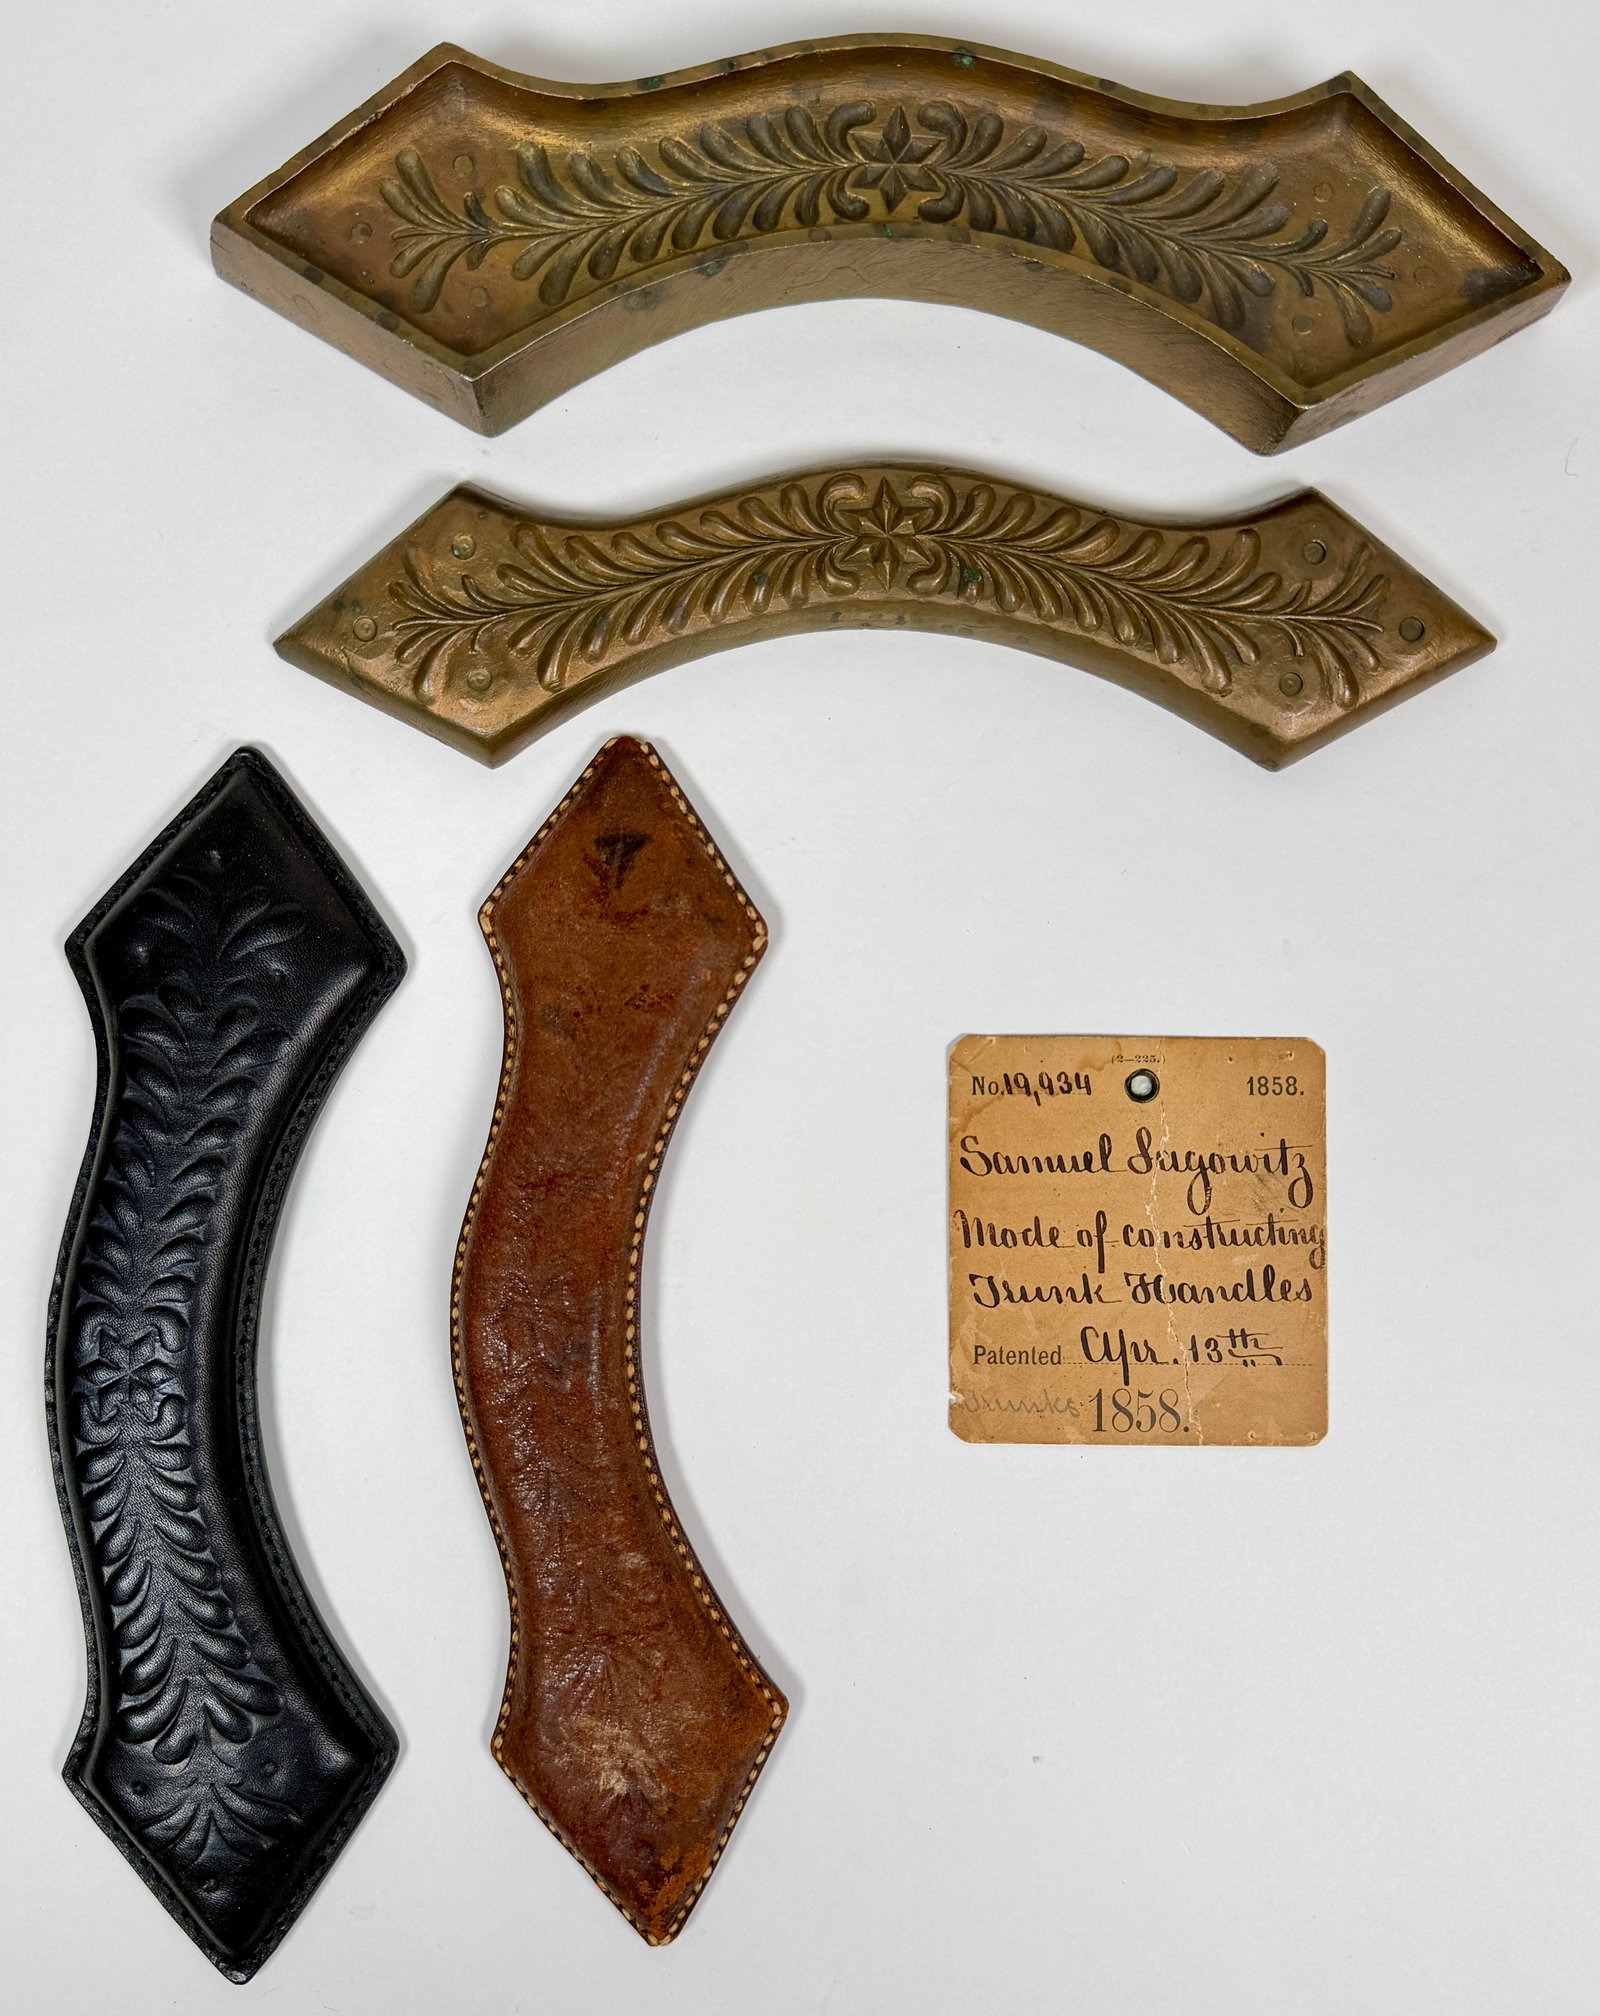 (2—225.)
No. 19,934 1858.
Samuel Lagowitz
Mode of constructing
Trunk Handles
Patented Apr. 13th
Trunks 1858.